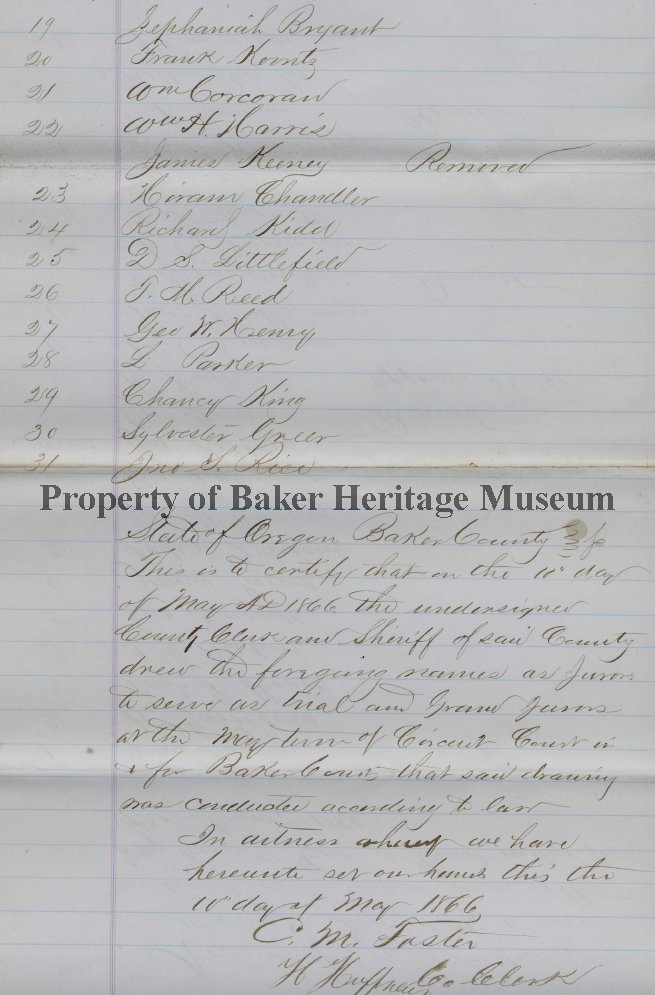 19 Zephaniah Bryant
20 Frank Koontz
21 Wm Corcoran
22 Wm H. Harris
James Keeney Removed
23 Hiram Chandler
24 Richard Kidd
25 D S. Littlefield
26 T. M. Reed
27 Geo W. Henry
28 L Parker
29 Chancy King
30 Sylvester Greer
31 Jno S. Rice
Property of Baker Heritage Museum
State of Oregon Baker County ss
This is to certify that on the 10" day
of May AD 1866 the undersigned
County Clerk and Sheriff of said County
drew the foregoing names as Jurors
to serve as trial and Grand Jurors
at the May term of Circuit Court in
& for Baker County that said drawing
was conducted according to law
In witness whereof we have
hereunto set our hands this the
10" day of May 1866
C. M. Foster
H Co Clerk